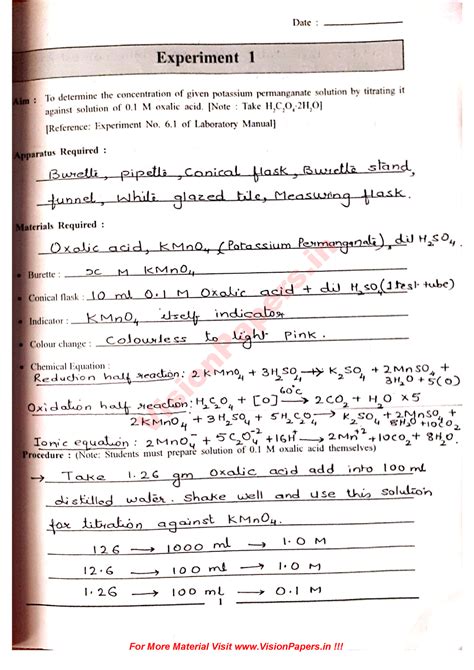 Date :
Experiment 1
Aim : To determine the concentration of given potassium permanganate solution by titrating it
against solution of 0.1 M oxalic acid. [Note : Take H₂C₂O₄·2H₂O]
[Reference: Experiment No. 6.1 of Laboratory Manual]
Apparatus Required :
Burette, pipette, Conical flask, Burette stand,
funnel, White glazed tile, Measuring flask.
Materials Required :
Oxalic acid, KMnO₄ (Potassium Permanganate), dil H₂SO₄
• Burette : x M KMnO₄
• Conical flask : 10 ml 0.1 M Oxalic acid + dil H₂SO₄ (1 test tube)
• Indicator : KMnO₄ itself indicator
• Colour change : Colourless to light pink.
• Chemical Equation :
Reduction half reaction: 2KMnO₄ + 3H₂SO₄ → K₂SO₄ + 2MnSO₄ + 3H₂O + 5(O)
Oxidation half reaction: H₂C₂O₄ + [O] 60°C → 2CO₂ + H₂O ×5
2KMnO₄ + 3H₂SO₄ + 5H₂C₂O₄ → K₂SO₄ + 2MnSO₄ + 8H₂O + 10CO₂
Ionic equation : 2MnO₄⁻ + 5C₂O₄⁻² + 16H⁺ → 2Mn⁺² + 10CO₂ + 8H₂O.
Procedure : (Note: Students must prepare solution of 0.1 M oxalic acid themselves)
→ Take 1.26 gm Oxalic acid add into 100 ml
distilled water. Shake well and use this solution
for titration against KMnO₄.
126 → 1000 ml → 1.0 M
12.6 → 100 ml → 1.0 M
1.26 → 100 ml → 0.1 M
1
VisionPapers.in
For More Material Visit www.VisionPapers.in !!!